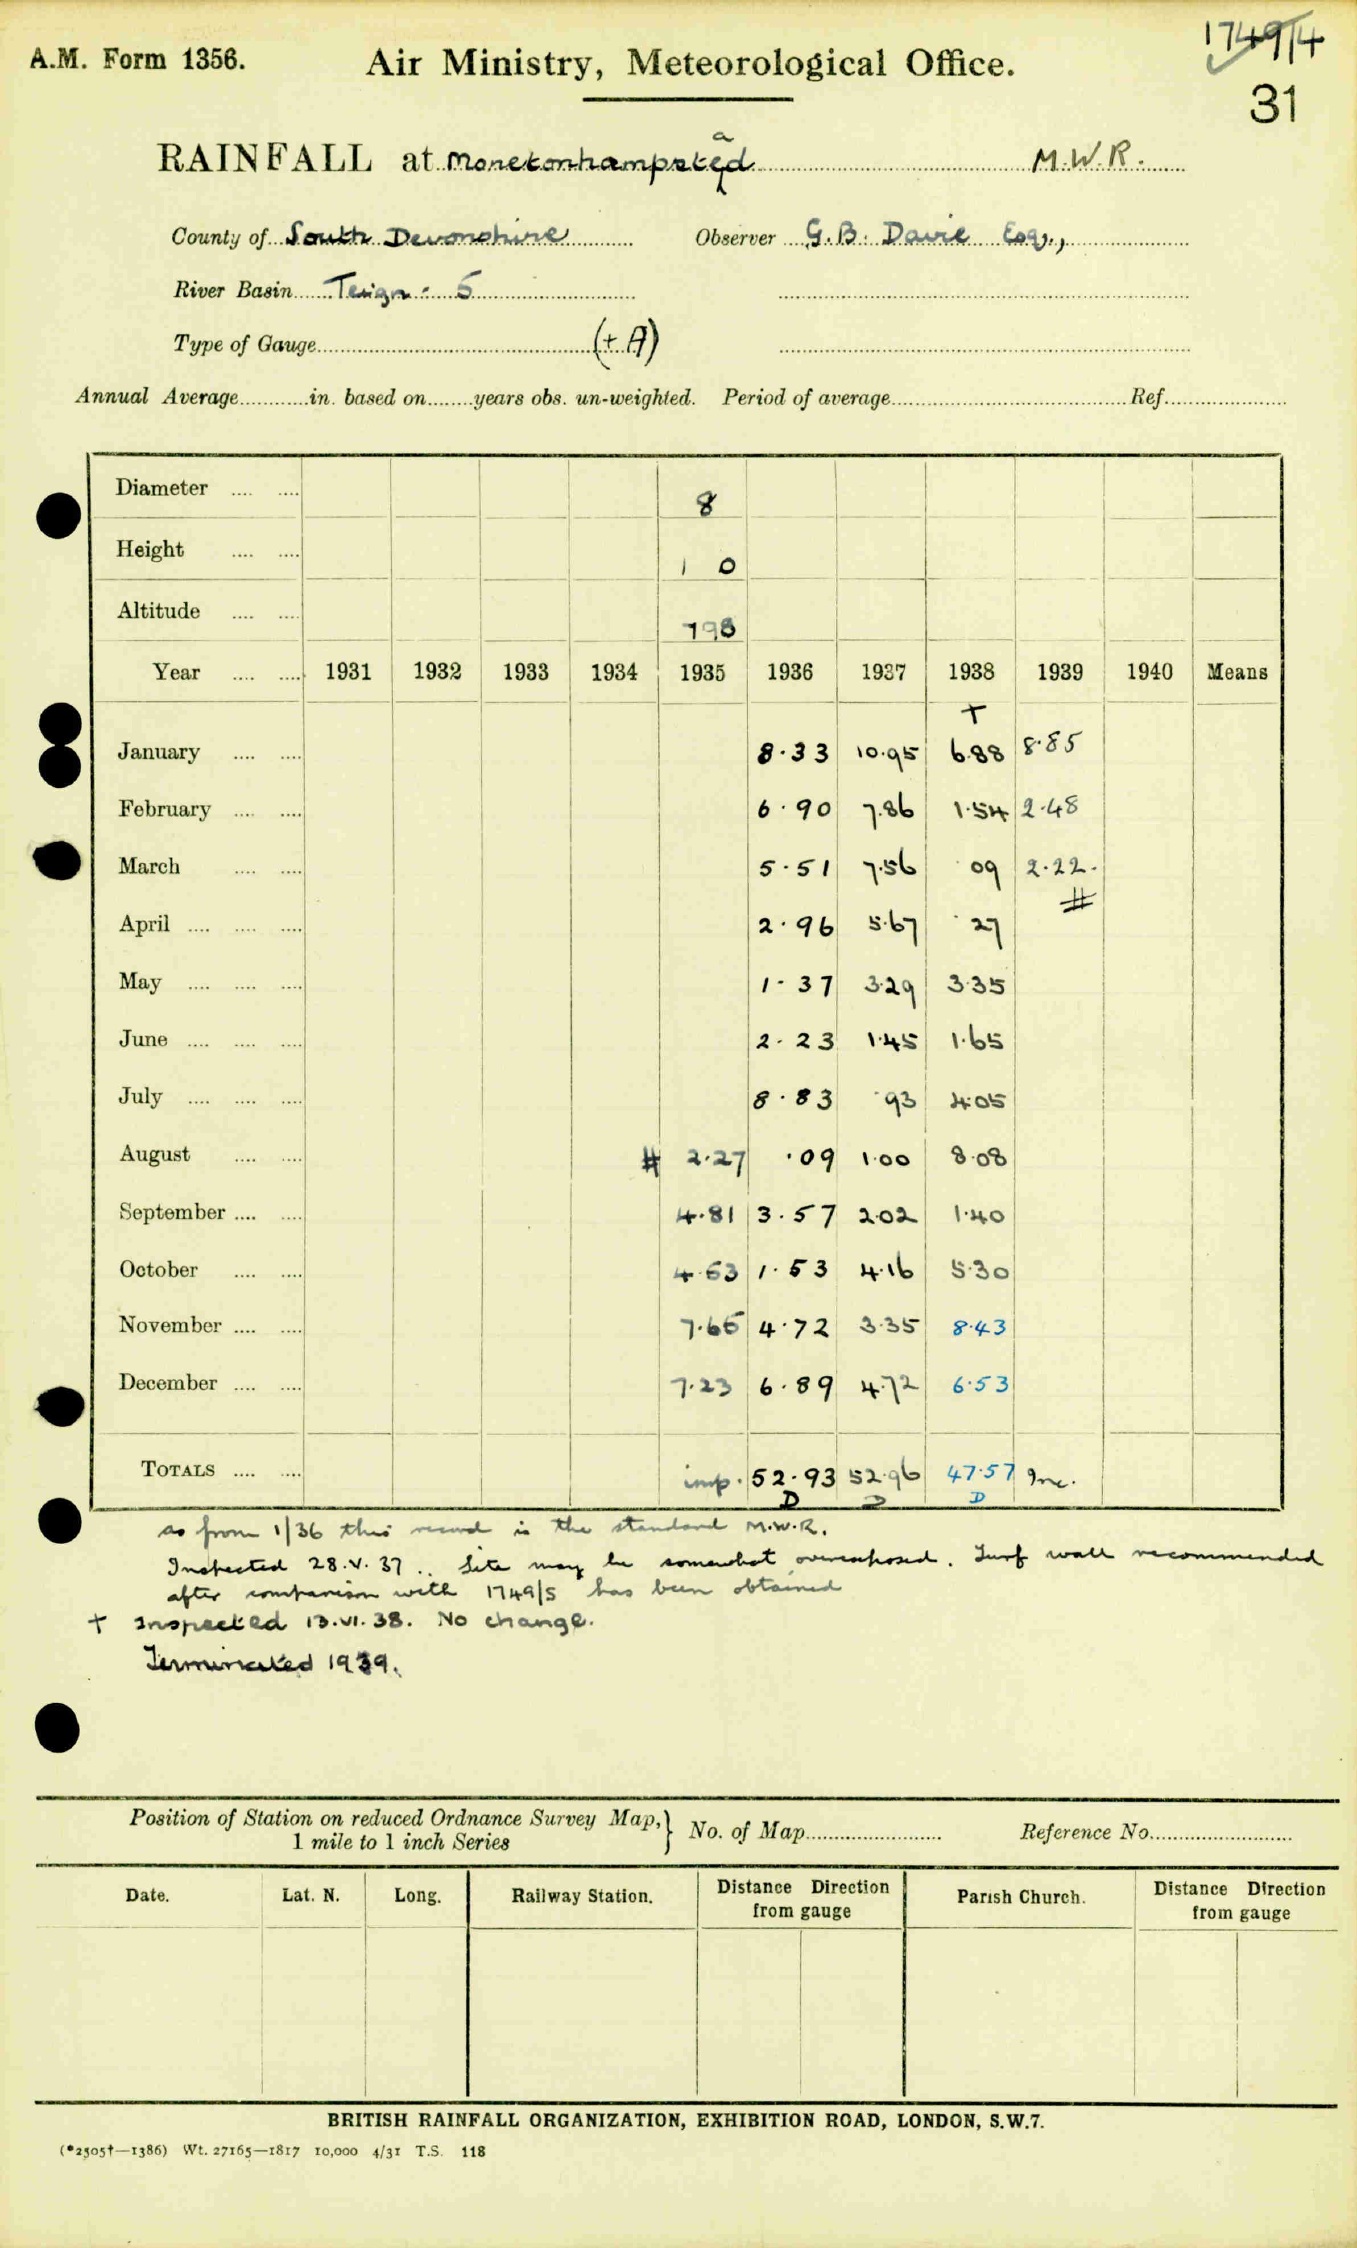 1749/4
A.M. Form 1356. Air Ministry, Meteorological Office.
31
RAINFALL at Moretonhampstead M.W.R.
County of South Devonshire Observer G.B. Davie Esq.,
River Basin Teign - 5
Type of Gauge (+ A)
Annual Average in. based on years obs. un-weighted. Period of average Ref.
Diameter 8
Height 1 0
Altitude 798
Year 1931 1932 1933 1934 1935 1936 1937 1938 1939 1940 Means
+
January 8.33 10.95 6.88 8.85
February 6.90 7.86 1.54 2.48
March 5.51 7.56 .09 2.22.
#
April 2.96 5.67 .27
May 1.37 3.29 3.35
June 2.23 1.45 1.65
July 8.83 .93 4.05
August # 2.27 .09 1.00 8.08
September 4.81 3.57 2.02 1.40
October 4.63 1.53 4.16 5.30
November 7.66 4.72 3.35 8.43
December 7.23 6.89 4.72 6.53
TOTALS imp. 52.93 52.96 47.57 Inc.
D D D
as from 1/36 this record is the standard M.W.R.
Inspected 28.V.37.. Site may be somewhat overexposed. Turf wall recommended
after comparison with 1749/5 has been obtained
+ Inspected 13.VI.38. No change.
Terminated 1939.
Position of Station on reduced Ordnance Survey Map, } No. of Map Reference No.
1 mile to 1 inch Series
Date. Lat. N. Long. Railway Station. Distance Direction from gauge Parish Church. Distance Direction from gauge
BRITISH RAINFALL ORGANIZATION, EXHIBITION ROAD, LONDON, S.W.7.
(*2505†—1386) Wt. 27165—1817 10,000 4/31 T.S. 118